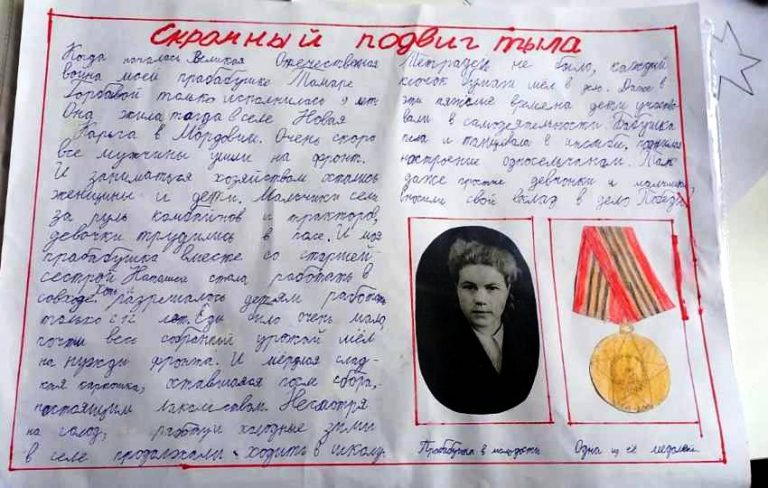 Скромный подвиг тыла
Когда началась Великая Отечественная
война моей прабабушке Тамаре
Горбавой только исполнилось 9 лет.
Она жила тогда в селе Новая
Карьга в Мордовии. Очень скоро
все мужчины ушли на фронт.
И заниматься хозяйством остались
женщины и дети. Мальчики сели
за руль комбайнов и тракторов,
девочки трудились в поле. И моя
прабабушка вместе со старшей
сестрой Наташей стала работать в
совхозе. Хоть и разрешалось детям работать
только с 12 лет. Еды было очень мало,
почти весь собранный урожай шёл
на нужды фронта. И мёрзлая слад-
кая картошка, оставшаяся после сбора,
настоящим лакомством. Несмотря
на голод, работу и холодные зимы
в селе продолжали ходить в школу.
Тетрадей не было, каждый
клочок бумаги шёл в дело. Даже в
эти тяжёлые времена дети участво-
вали в самодеятельности. Бабушка
пела и танцевала в ансамбле, поднимая
настроение односельчанам. Так
даже простые девчонки и мальчишки,
вносили свой вклад в дело Победы
Прабабушка в молодости
Одна из её медалей